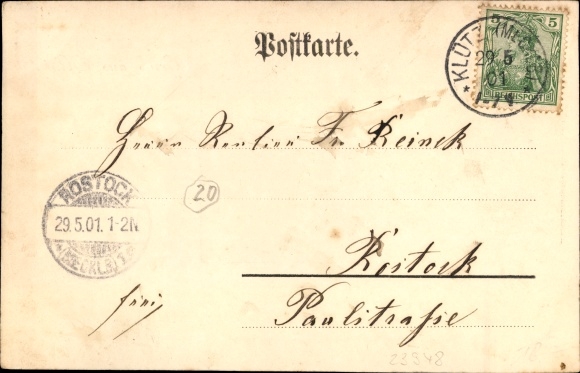 Postkarte.
5
REICHSPOST
KLÜTZ (MECKLB)
29 5
01
1-7 V
Herrn Rentier Fr Reinck
ROSTOCK
29.5.01. 1-2N
(MECKLB) 1
20
Rostock
frei
Paulstraße
23348